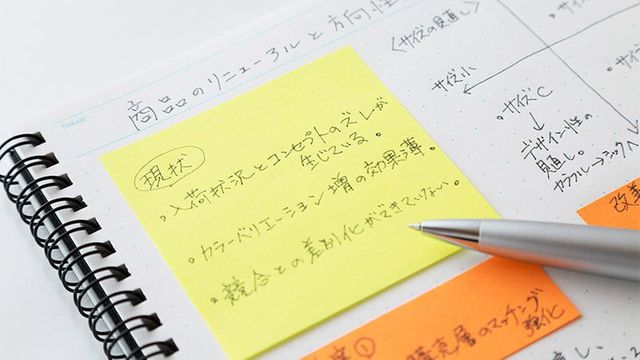 THEME
商品のリニューアルと方向性
現状
。入荷状況とコンセプトのズレが
生じている。
。カラーバリエーション増の効果薄。
。競合との差別化ができていない。
〈サイズの見直し〉
サイズ小
。サイズC
デザイン性の
見直し。
カラフル→シックへ
改善
購買層のマッチング
強化